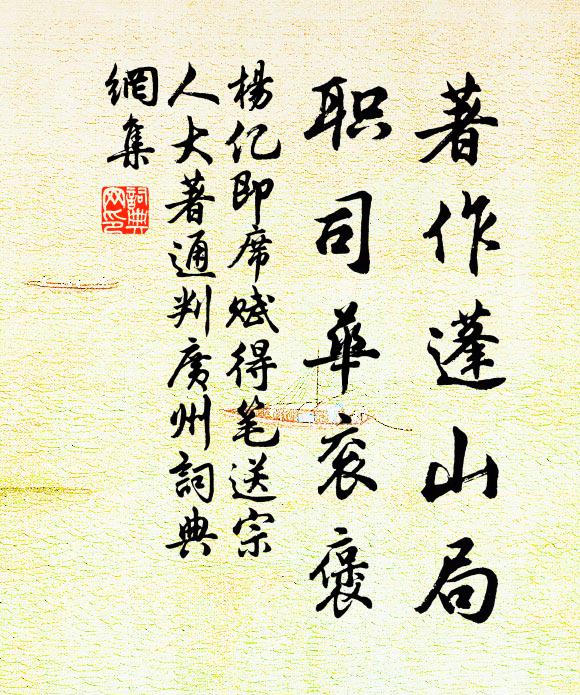 著作蓬山局
职司華衮褒
楊亿即席赋得笔送宗
人大著通判廣州詞典
網集
詞典网印